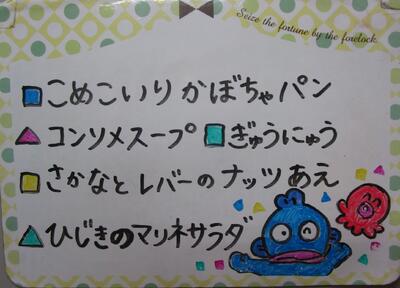 Seize the fortune by the forelock.
こめこいりかぼちゃパン
コンソメスープ ぎゅうにゅう
さかなとレバーのナッツあえ
ひじきのマリネサラダ